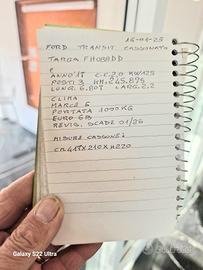 15-04-25
FORD TRANSIT CASSONATO
TARGA. FH088DD
ANNO 18 C.C. 2.0 KW 125
POSTI 3 KM. 245.895
LUNG. 6.807 LARG. 2.2
CLIMA
MARCE 6
PORTATA 1090 KG
EURO 6B
REVIS. SCADE 01/26
MISURE CASSONE:
CM. 418X210XH220
Galaxy S22 Ultra